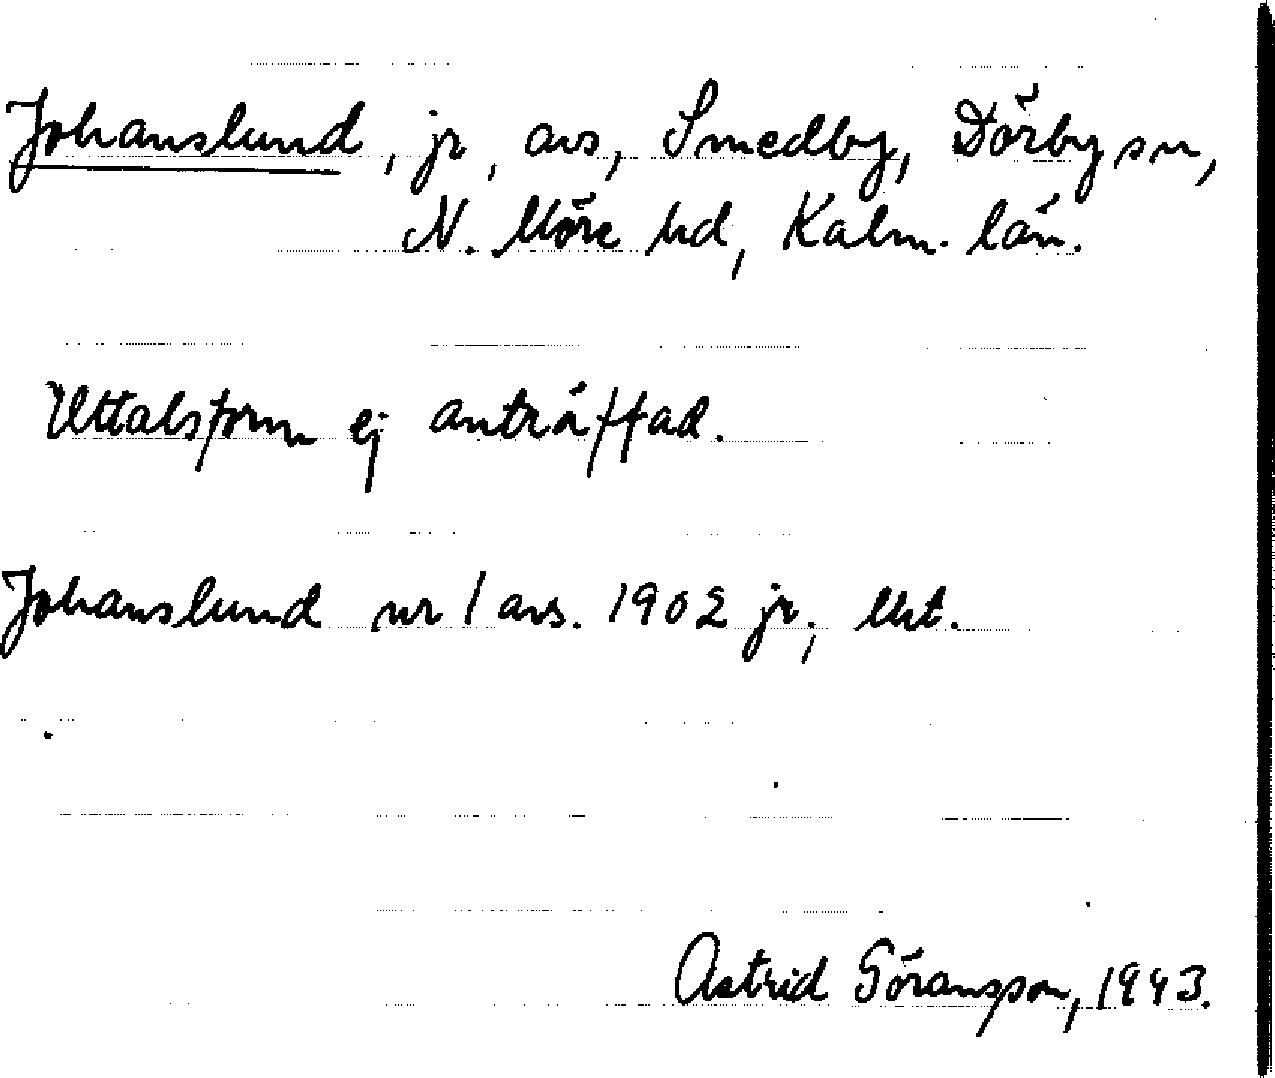 Johanslund, jr, avs, Smedby, Dörby sn,
N. Möre hd, Kalm. län.
Uttalsform ej anträffad.
Johanslund nr 1 avs. 1902 jr, Mt.
Astrid Göransson, 1943.